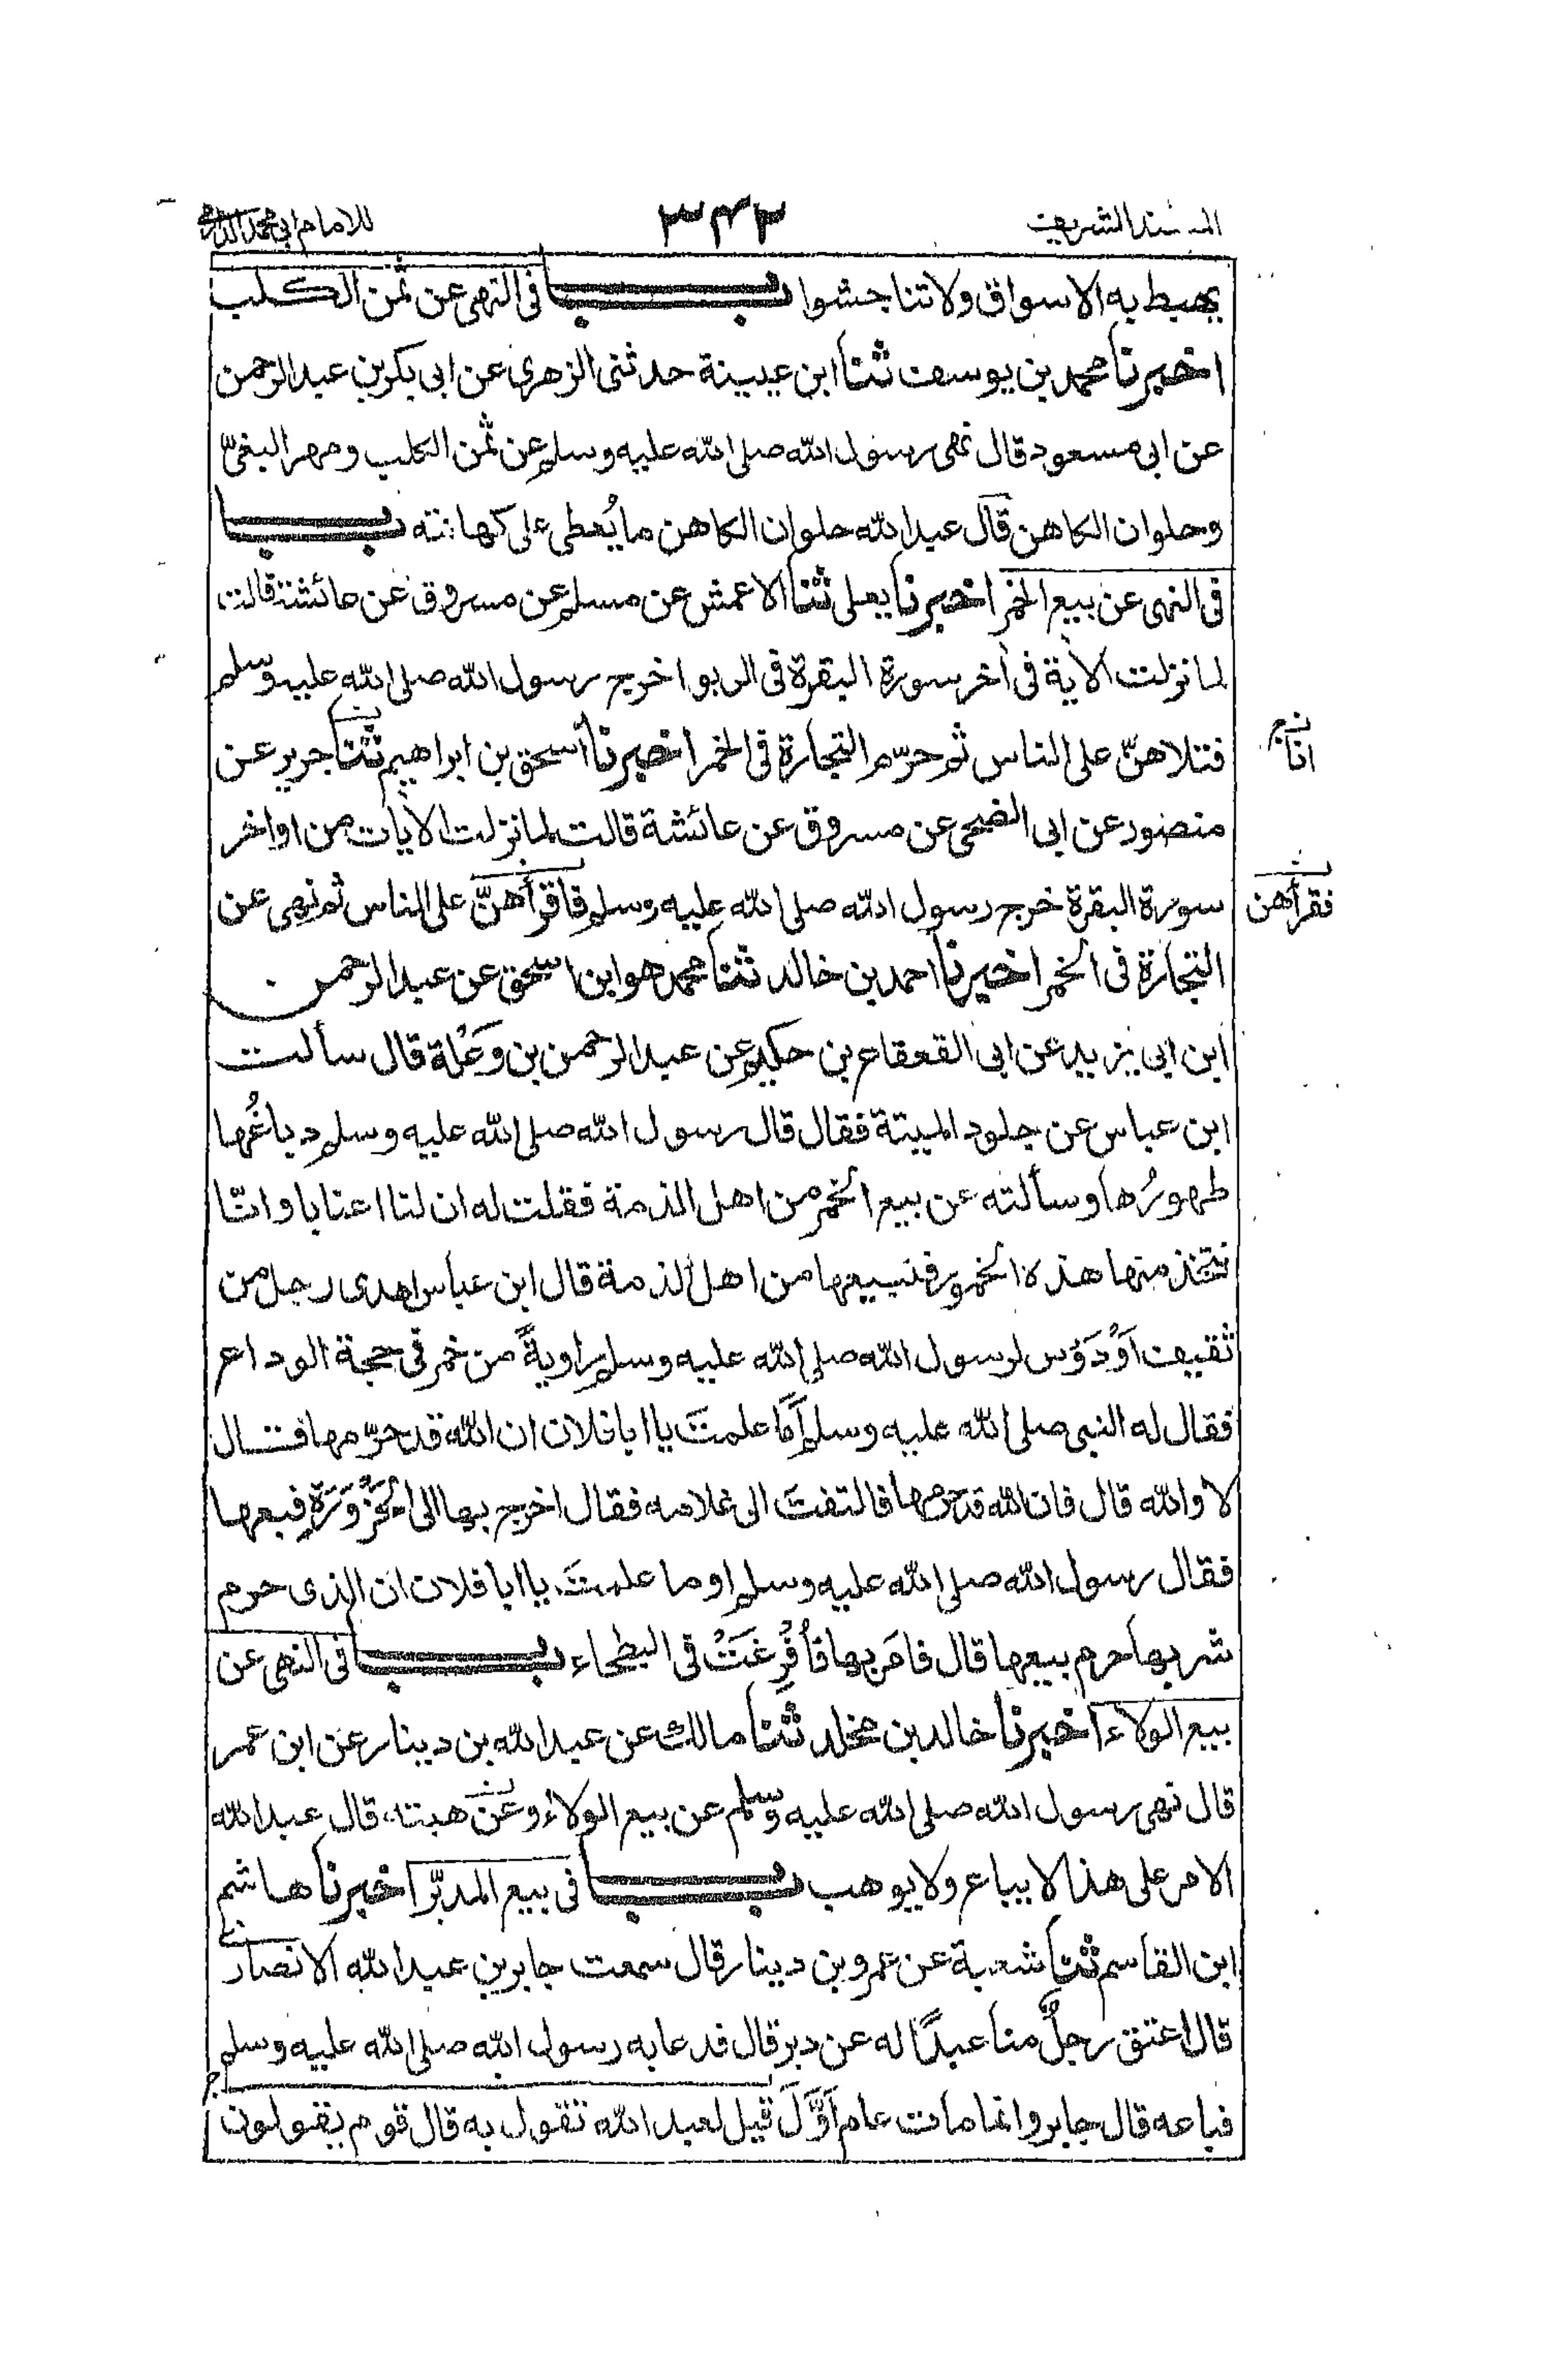 المسند الشريف ٣٤٣ للامام ابي محمد الدارمي
يهبط به الاسواق ولا تناجشوا باب في النهى عن ثمن الكلب
اخبرنا محمد بن يوسف ثنا ابن عيينة حدثنى الزهرى عن ابى بكر بن عبد الرحمن
عن ابى مسعود قال نهى رسول الله صلى الله عليه وسلم عن ثمن الكلب ومهر البغىّ
وحلوان الكاهن قال عبد الله حلوان الكاهن ما يُعطى على كهانته باب
فى النهى عن بيع الخمر اخبرنا يعلى ثنا الاعمش عن مسلم عن مسروق عن عائشة قالت
لما نزلت الأية فى أخر سورة البقرة فى الربوا خرج رسول الله صلى الله عليه وسلم
فتلاهنّ على الناس ثم حرّم التجارة فى الخمر اخبرنا اسحق بن ابراهيم ثنا جرير عن
انا
منصور عن ابى الضحى عن مسروق عن عائشة قالت لما نزلت الأيات من اواخر
سورة البقرة خرج رسول الله صلى الله عليه وسلم فاقرأهنّ على الناس ثم نهى عن
فقرأهن
التجارة فى الخمر اخبرنا احمد بن خالد ثنا محمد هو ابن اسحق عن عبد الرحمن
ابن ابى يزيد عن ابى القعقاع بن حكيم عن عبد الرحمن بن وَعْلة قال سألت
ابن عباس عن جلود الميتة فقال قال رسول الله صلى الله عليه وسلم دباغُها
طهورُها وسألته عن بيع الخمر من اهل الذمة فقلت له ان لنا اعنابا وانّا
نتخذ منها هذه الخمور فنبيعها من اهل الذمة قال ابن عباس اهدى رجل من
ثقيف اَوْ دَوْس لرسول الله صلى الله عليه وسلم راويةً من خمر فى حجة الوداع
فقال له النبى صلى الله عليه وسلم اَمَا علمتَ يا ابا فلان ان الله قد حرّمها فقال
لا والله قال فان الله قد حرمها فالتفتَ الى غلامه فقال اخرج بها الى الحَزْوَرَةِ فبعها
فقال رسول الله صلى الله عليه وسلم اوما علمتَ يا ابا فلان ان الذى حرم
شربها حرم بيعها قال فامَر بها فأُفْرِغَتْ فى البطحاء باب فى النهى عن
بيع الولاء اخبرنا خالد بن مخلد ثنا مالك عن عبد الله بن دينار عن ابن عمر
قال نهى رسول الله صلى الله عليه وسلم عن بيع الولاء وعن هبته قال عبد الله
الامر على هذا لا يباع ولا يوهب باب فى بيع المدبّر اخبرنا هاشم
ابن القاسم ثنا شعبة عن عمرو بن دينار قال سمعت جابر بن عبد الله الانصارى
قال اعتق رجلٌ منا عبدًا له عن دبر قال فدعا به رسول الله صلى الله عليه وسلم
فباعه قال جابر وانما مات عام اَوَّلَ قيل لعبد الله تقول به قال قوم يقولون